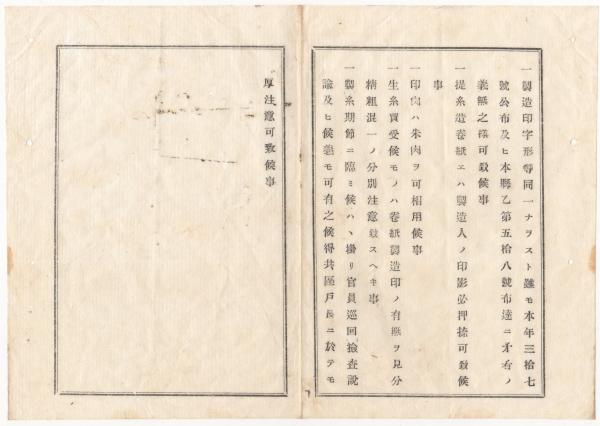 一製造印字形等同一ナヲスト雖モ本年三拾七
號公布及ヒ本縣乙第五拾八號布達ニ矛盾ノ
義無之樣可致候事
一提糸造卷紙エハ製造人ノ印影必押捺可致候
事
一印肉ハ朱肉ヲ可相用候事
一生糸買受候モノハ卷紙製造印ノ有無ヲ見分
精粗混一ノ分別注意致スヘキ事
一製糸期節ニ臨ミ候ハヽ掛リ官員巡回撿査說
諭及ヒ候義モ可有之候得共區戶長ニ於テモ
厚注意可致候事